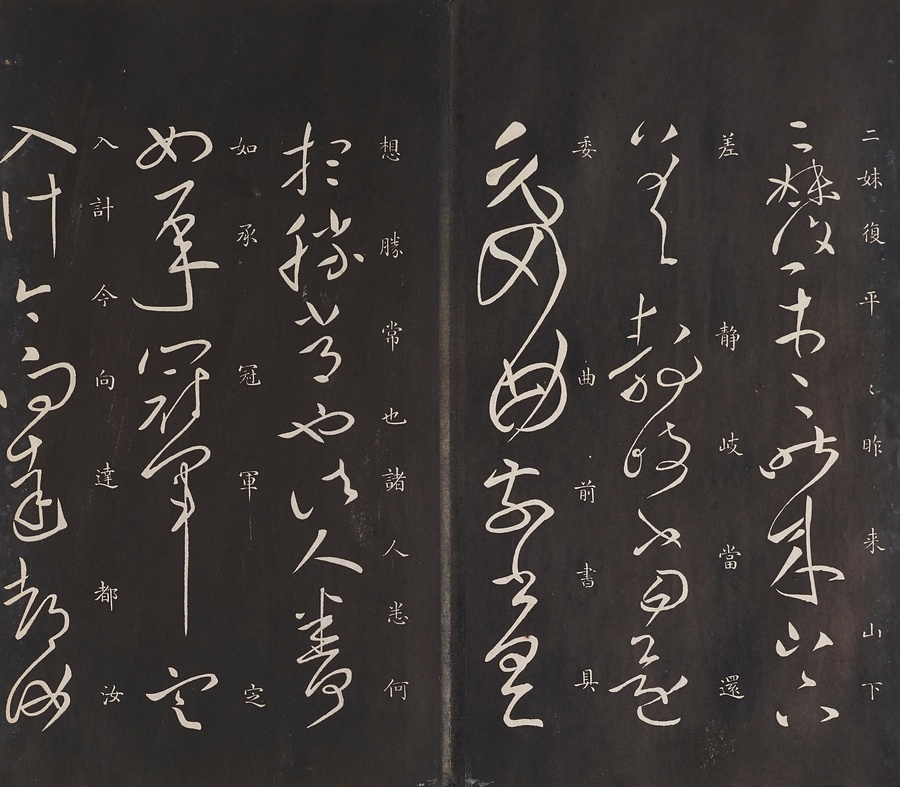 二妹復平〻昨来山下
差静岐當還
委曲前書具
想勝常也諸人悉何
如承冠軍定
入計今向達都汝